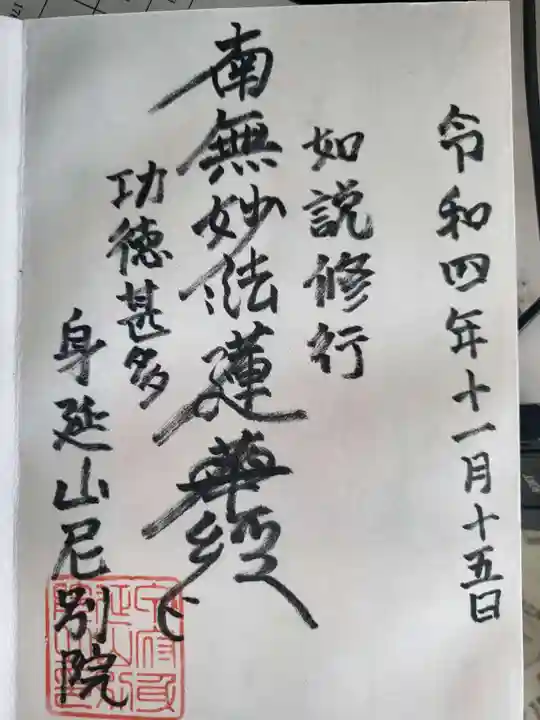 令和四年十一月十五日
如説修行
南無妙法蓮華經
功徳甚多
身延山尼別院